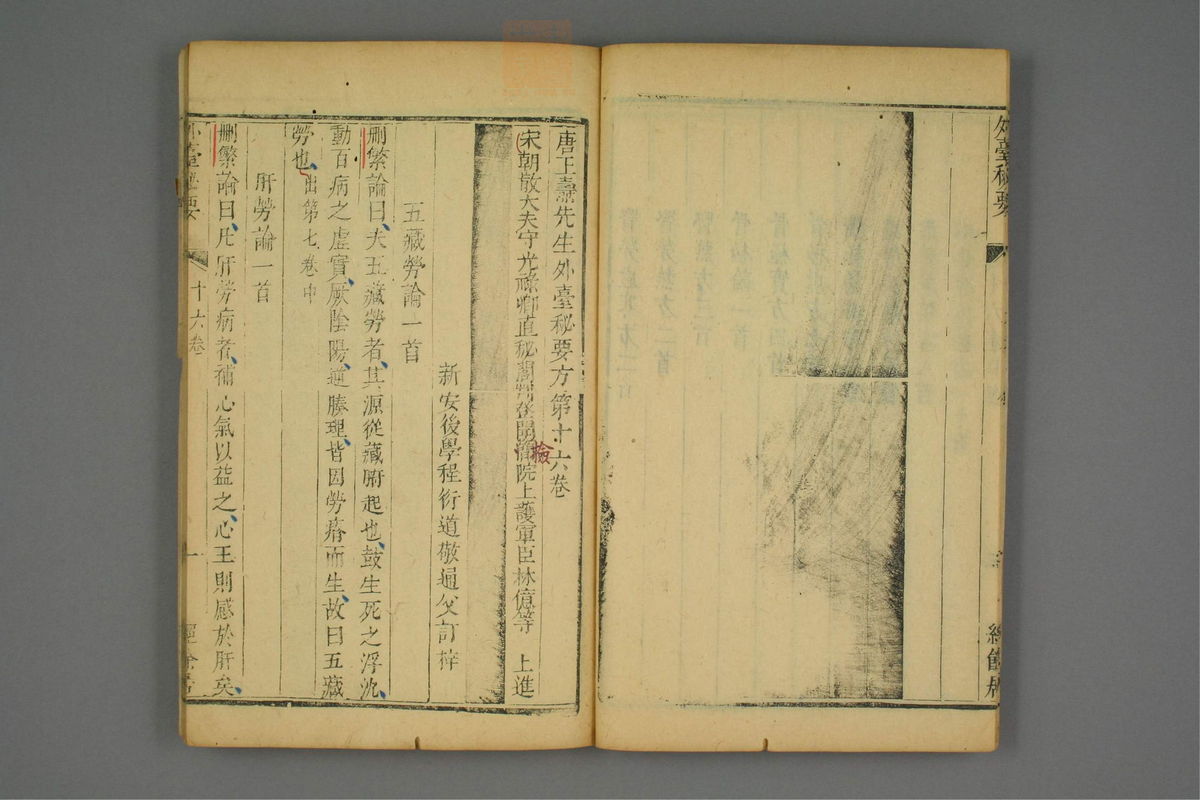 外臺秘要
經餘居
唐王燾先生外臺秘要方第十六卷
宋朝散大夫守光祿卿直秘閣判登聞簡院上護軍臣林億等 上進
檢
新安後學程衍道敬通父訂梓
五藏勞論一首
刪繁論曰、夫五藏勞者、其源從藏腑起也、鼓生死之浮沈、
動百病之虛實、厥陰陽、逆腠理、皆因勞瘠而生、故曰五藏
勞也、出第七卷中
肝勞論一首
刪繁論曰、凡肝勞病者、補心氣以益之、心王則感於肝矣、
外臺秘要
十六卷
一
經餘居